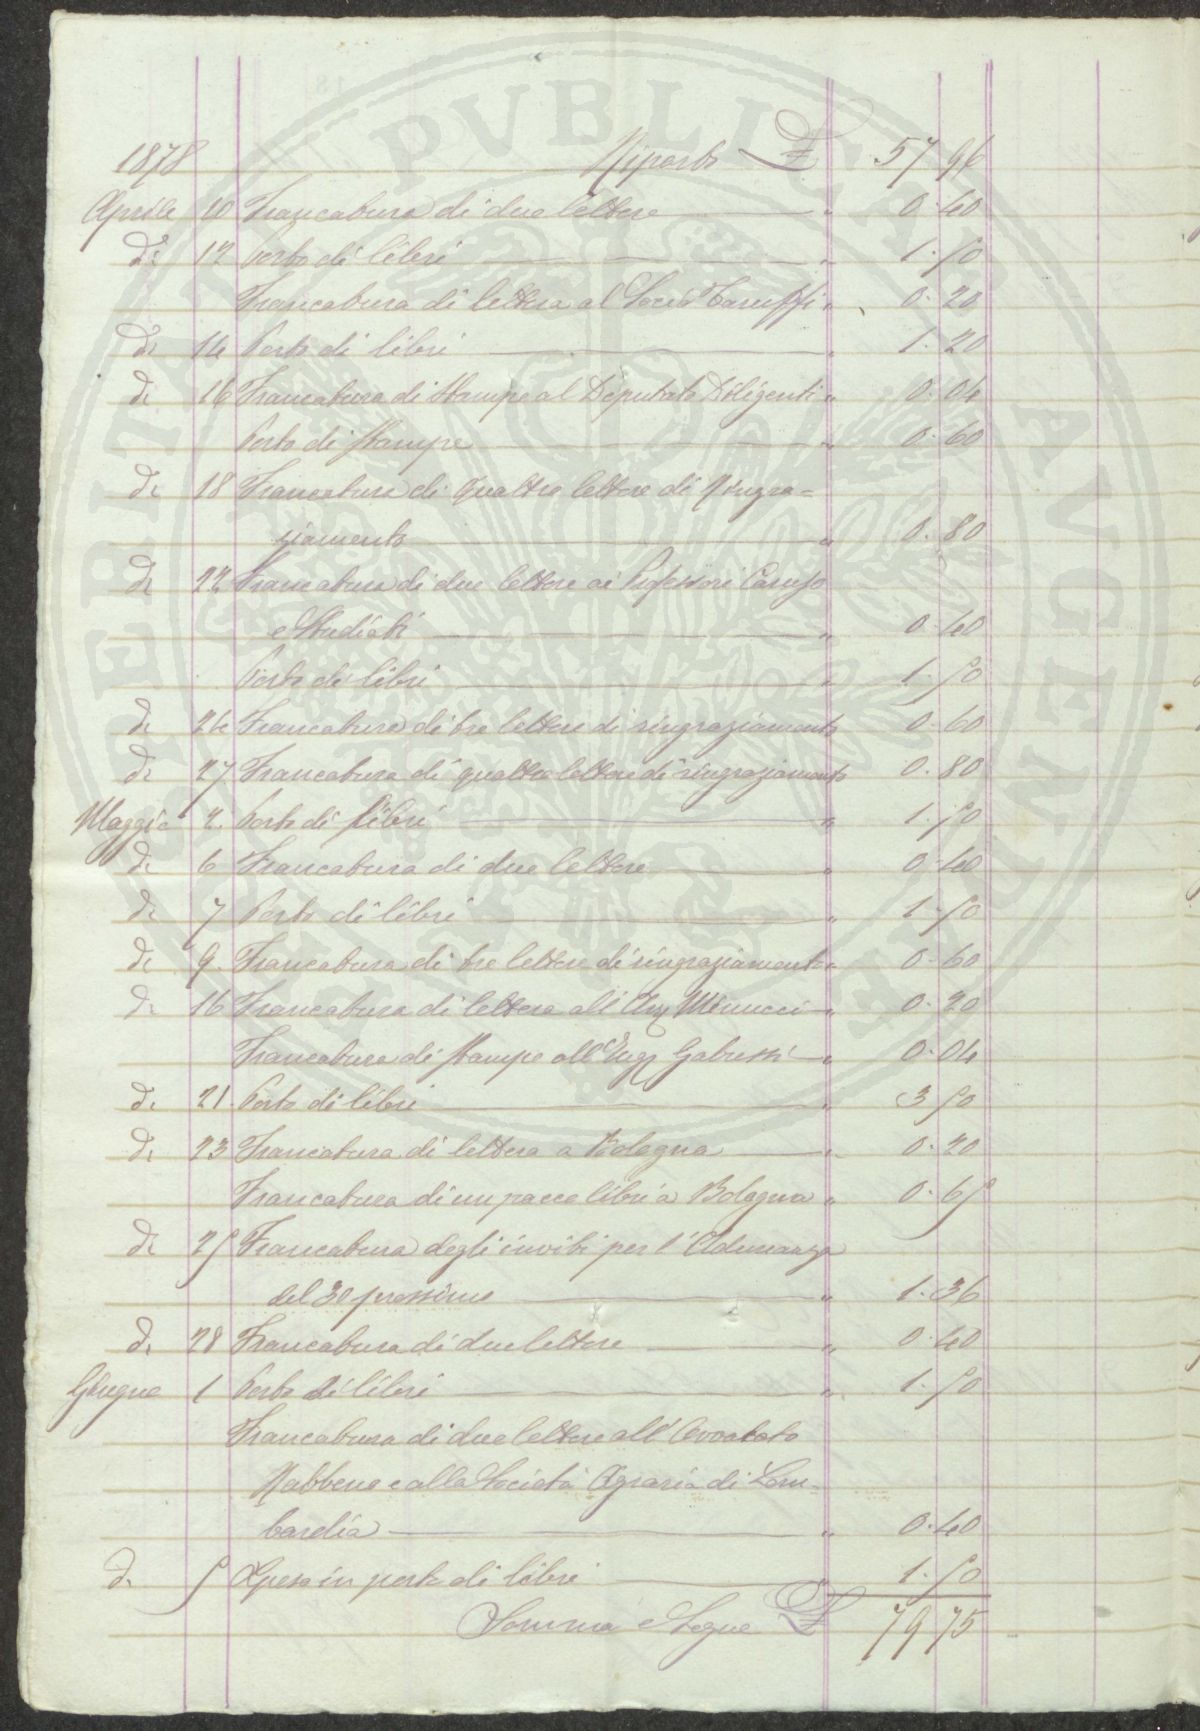 1878 Riporto £ 57 96
Aprile 10 Francatura di due lettere " 0.40
Di 12 Porto di libri " 1.50
Francatura di lettera al Socio Taruffi " 0.20
Di 14 Porto di libri " 1.20
Di 16 Francatura di Stampe al Deputato Diligenti " 0.04
Porto di Stampe " 0.60
Di 18 Francatura di Quattro lettere di Ringra=
ziamento " 0.80
Di 22 Francatura di due lettere ai Professori Caruso
e Studiati " 0.40
Porto di libri " 1.50
Di 24 Francatura di tre lettere di ringraziamento 0.60
Di 27 Francatura di quattro lettere di ringraziamento 0.80
Maggio 2. Porto di libri " 1.50
Di 6 Francatura di due lettere " 0.40
Di 7 Porto di libri " 1.50
Di 9. Francatura di tre lettere di ringraziamento " 0.60
Di 16 Francatura di lettera all' Minucci " 0.20
Francatura di Stampe all'Ing Gabussi " 0.04
Di 21. Porto di libri " 3 50
Di 23 Francatura di lettera a Bologna " 0.20
Francatura di un pacco libri a Bologna " 0.65
Di 25 Francatura degli inviti per l'Adunanza
del 30 prossimo " 1.36
Di 28 Francatura di due lettere " 0.40
Giugno 1 Porto di libri " 1.50
Francatura di due lettere all' Avvocato
Rabbeno e alla Società Agraria di Lom=
bardia " 0.40
Di 5 Spesa in porto di libri " 1.50
Somma e Segue £ 79 75
PVBLICAE AVGENDAE PROSPERITATI